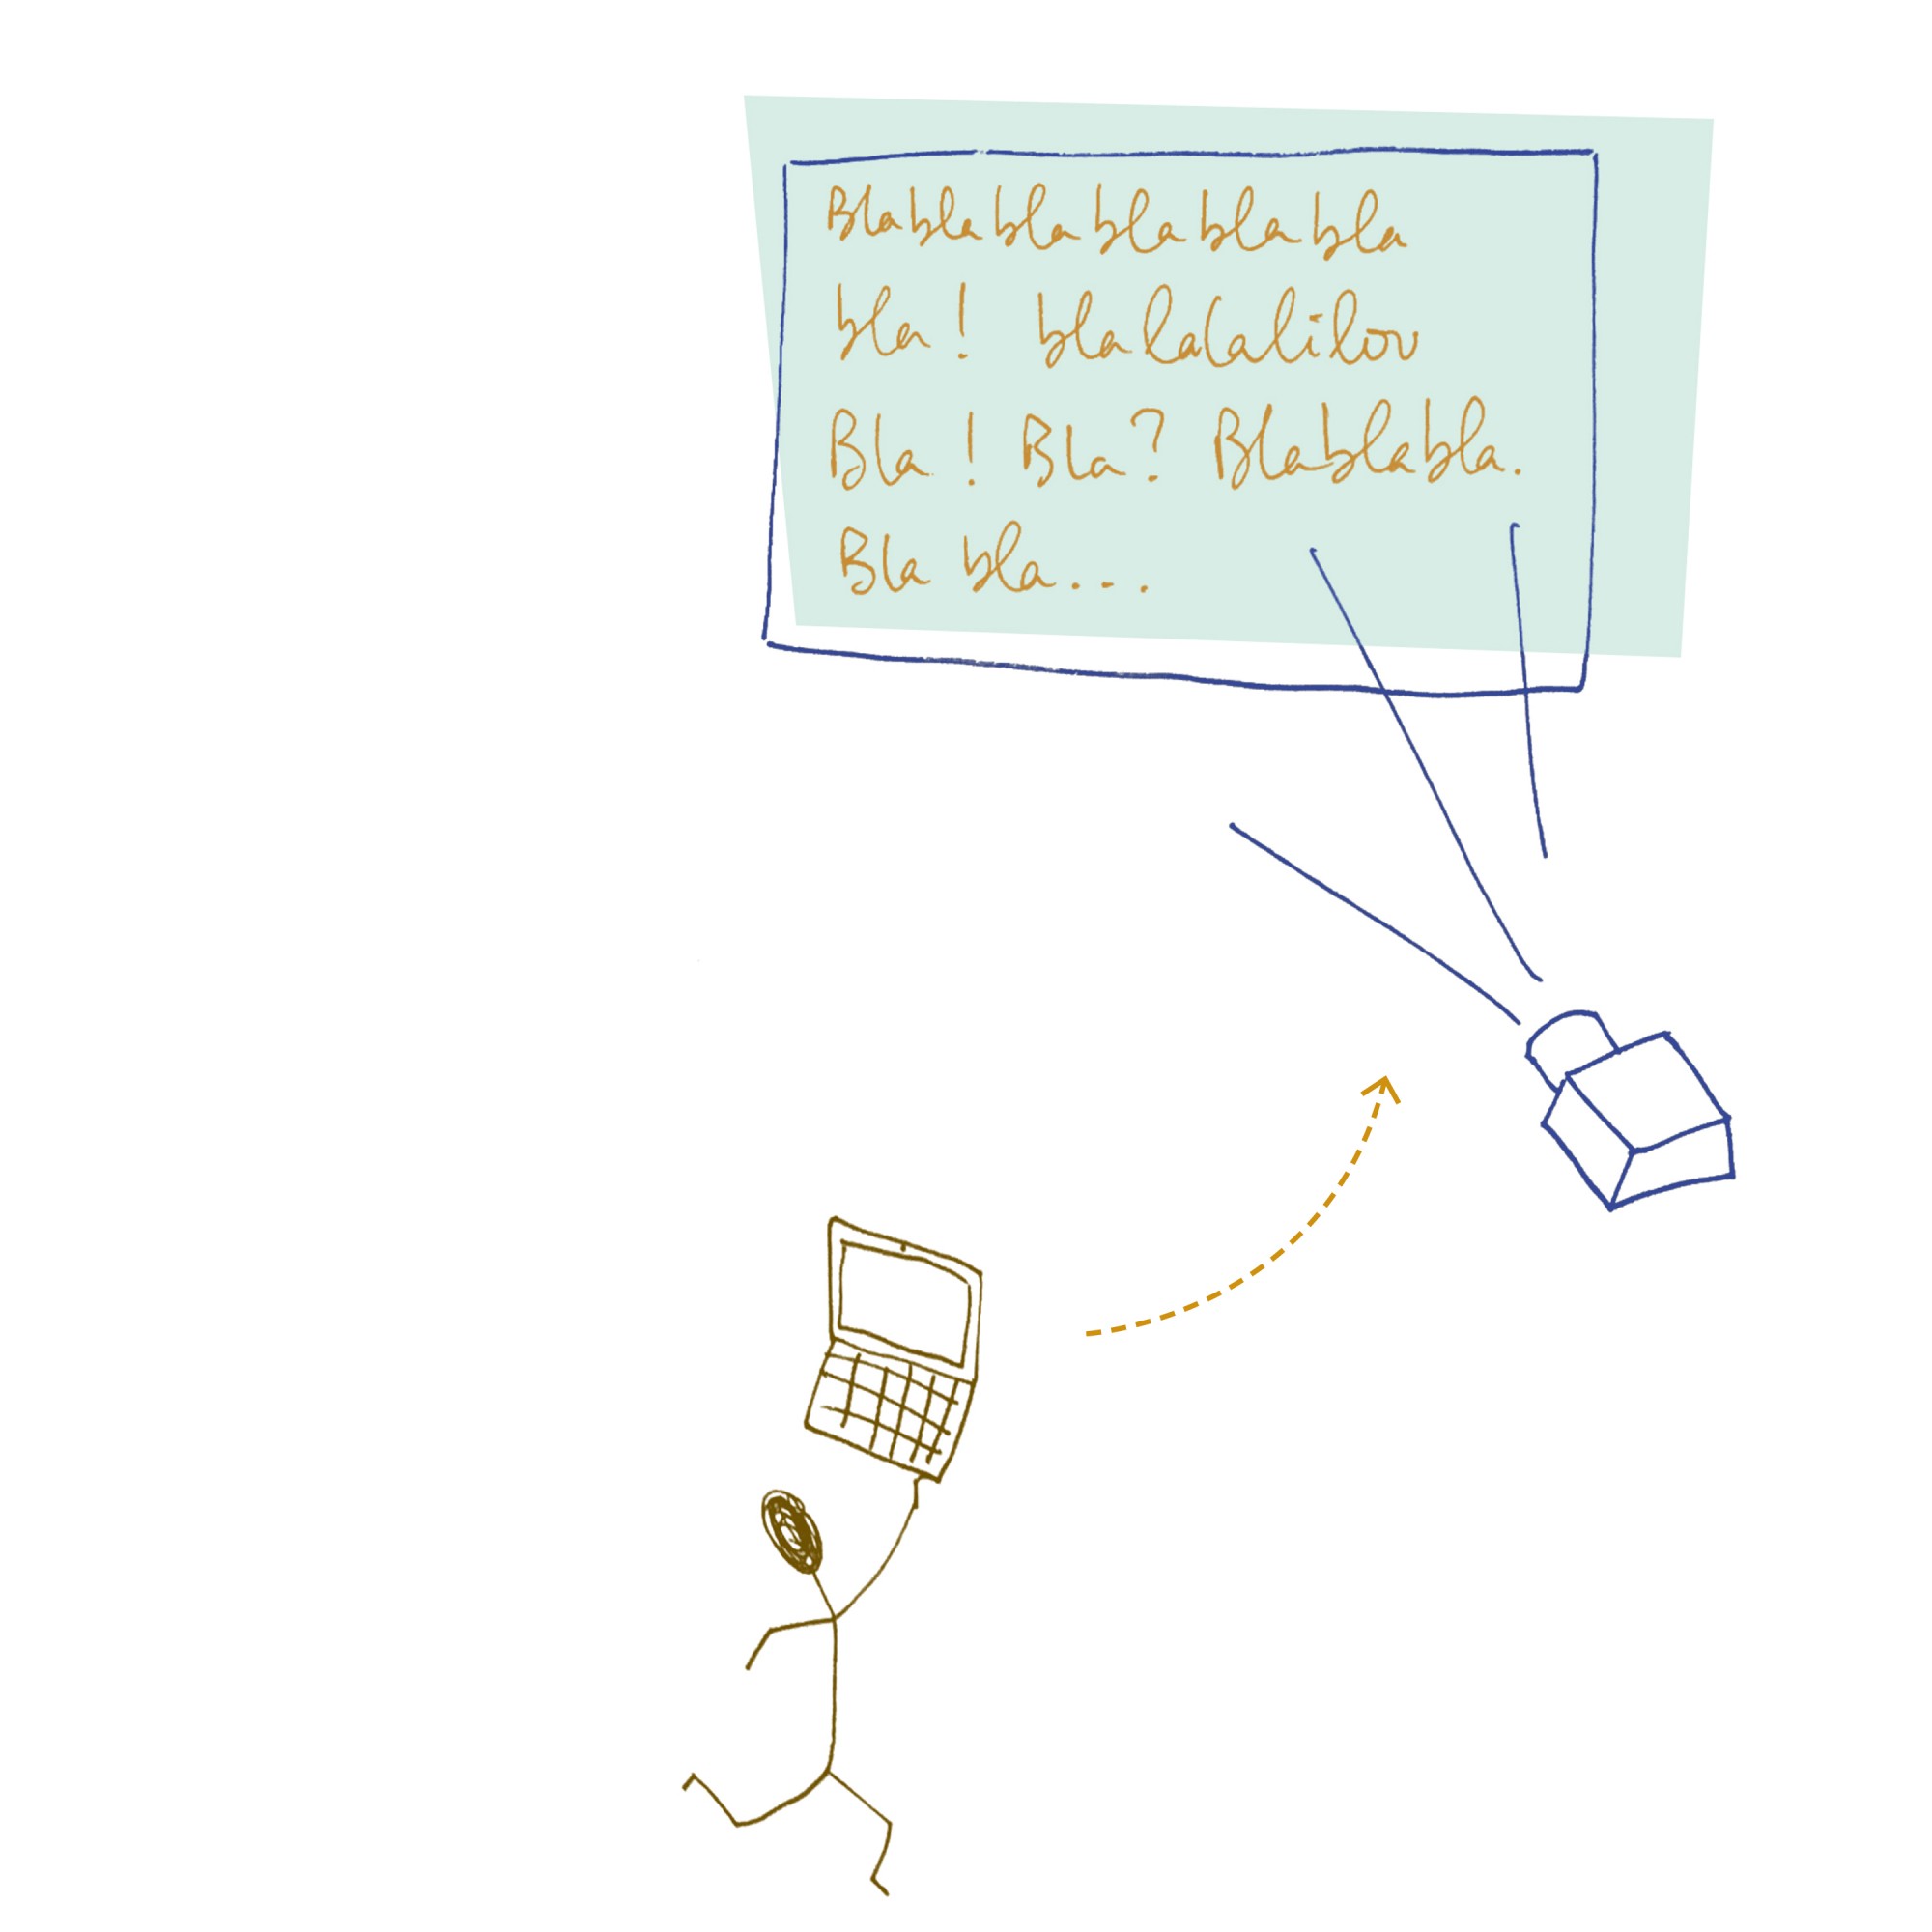 Blablablablablabla
bla! blalalalilou
Bla! Bla? Blablabla.
Bla bla...